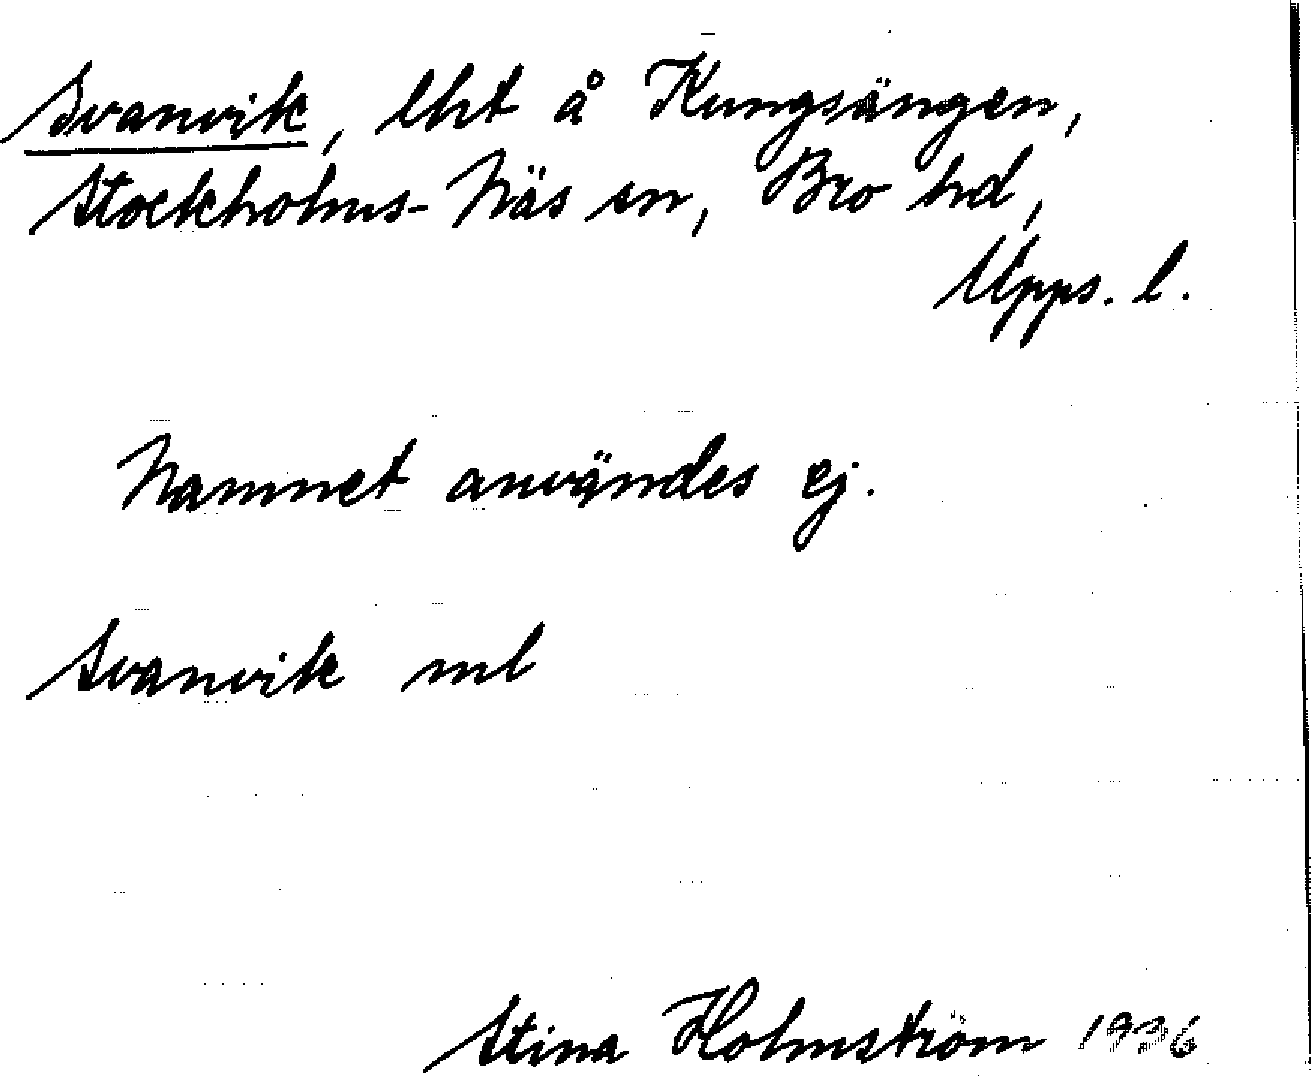 Svanvik, lht å Kungsängen,
Stockholms-Näs sn, Bro hd,
Upps. l.
Namnet användes ej.
Svanvik ml
Stina Holmström 1936